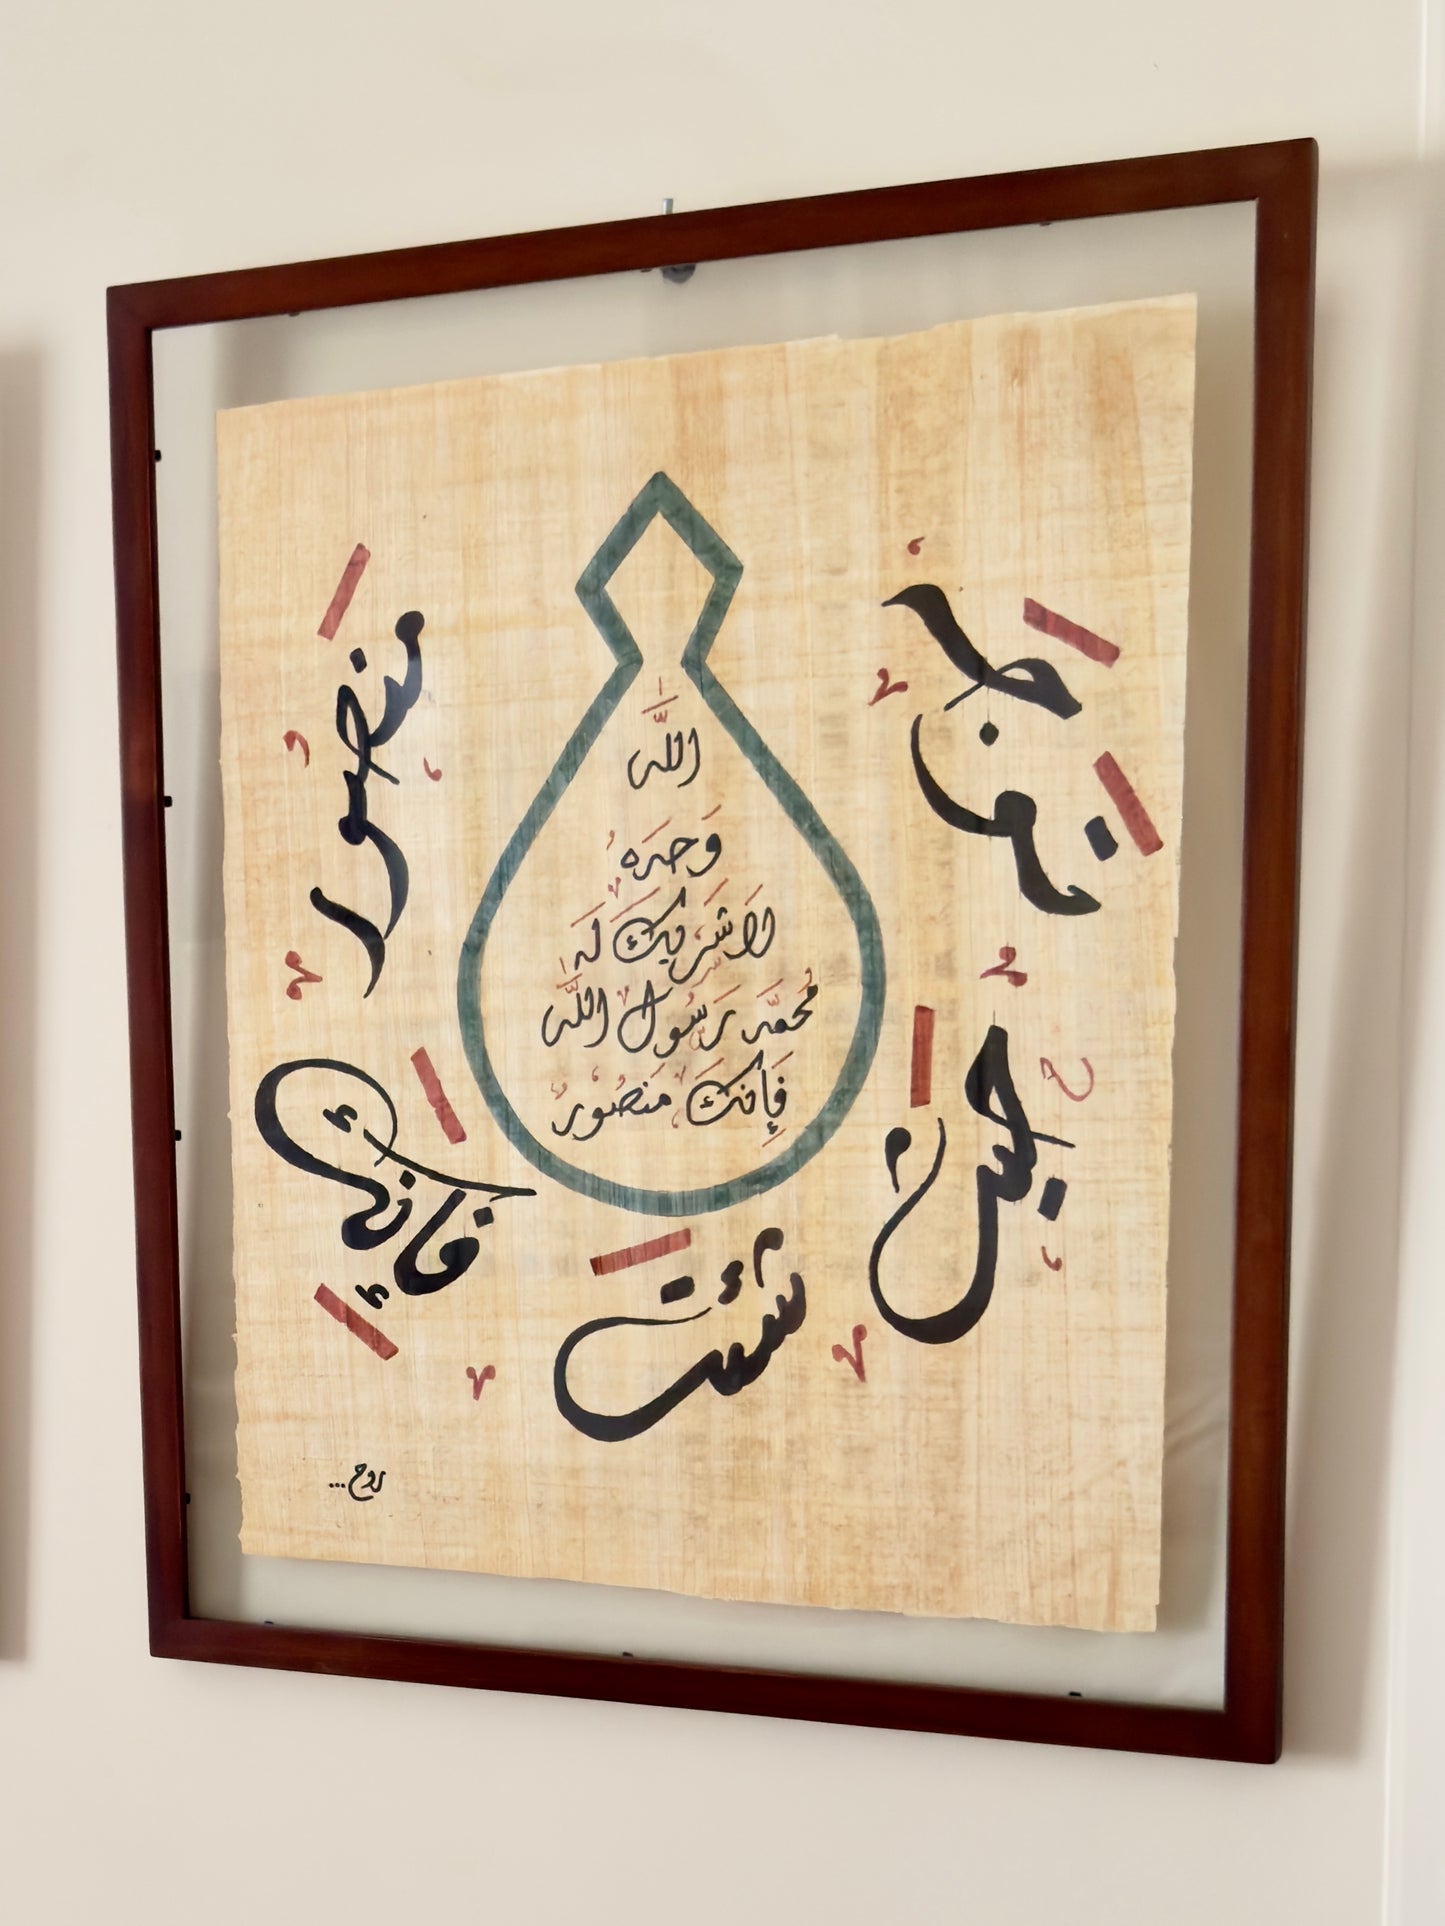 اللَّه
وَحدَهُ
لَا شَرِيكَ لَه
مُحمَّد رَسُولُ اللَّه
فَإِنَّكَ مَنصُورٌ
حَيثُ
شِئتَ
فَإِنَّكَ
مَنصُور
روح...